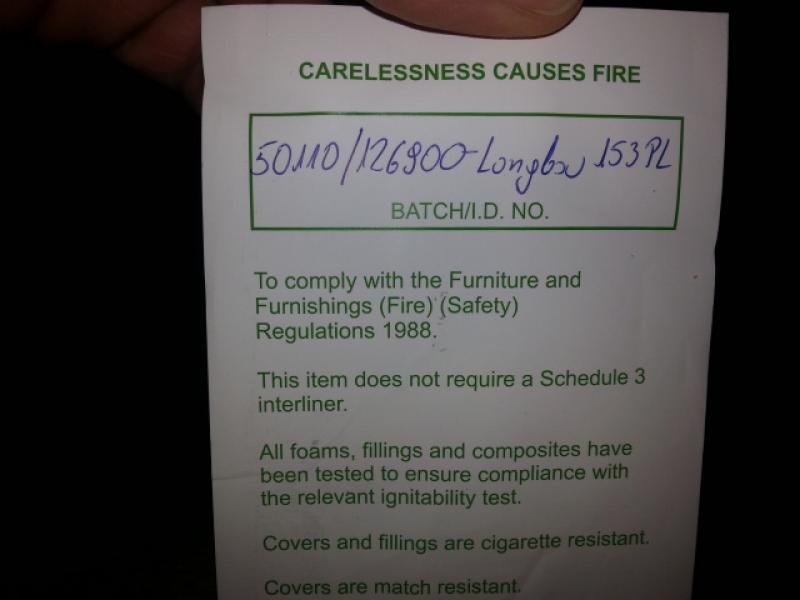 CARELESSNESS CAUSES FIRE
50110/126900-Longbow 153PL
BATCH/I.D. NO.
To comply with the Furniture and
Furnishings (Fire) (Safety)
Regulations 1988.
This item does not require a Schedule 3
interliner.
All foams, fillings and composites have
been tested to ensure compliance with
the relevant ignitability test.
Covers and fillings are cigarette resistant.
Covers are match resistant.